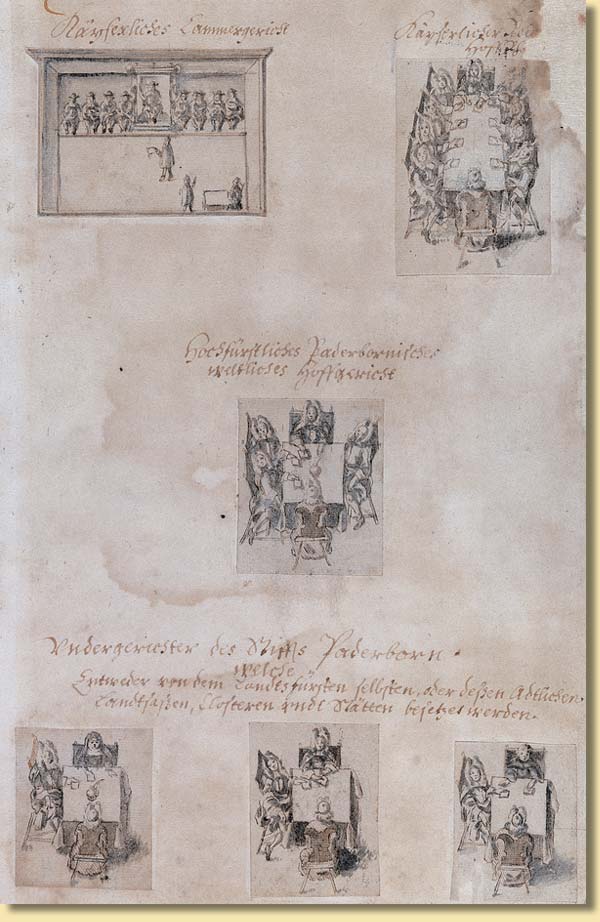 Käyserliches Cammergericht
Käyserlicher
Hoffrath
Hochfürstliches Paderbornisches
weltliches Hoffgericht
Undergerichter des Stiffts Paderborn.
welche
Entweder von dem Landtsfürsten selbsten, oder deßen Adtlichen
Landtsaßen, Clösteren undt Stätten besetzet werden.